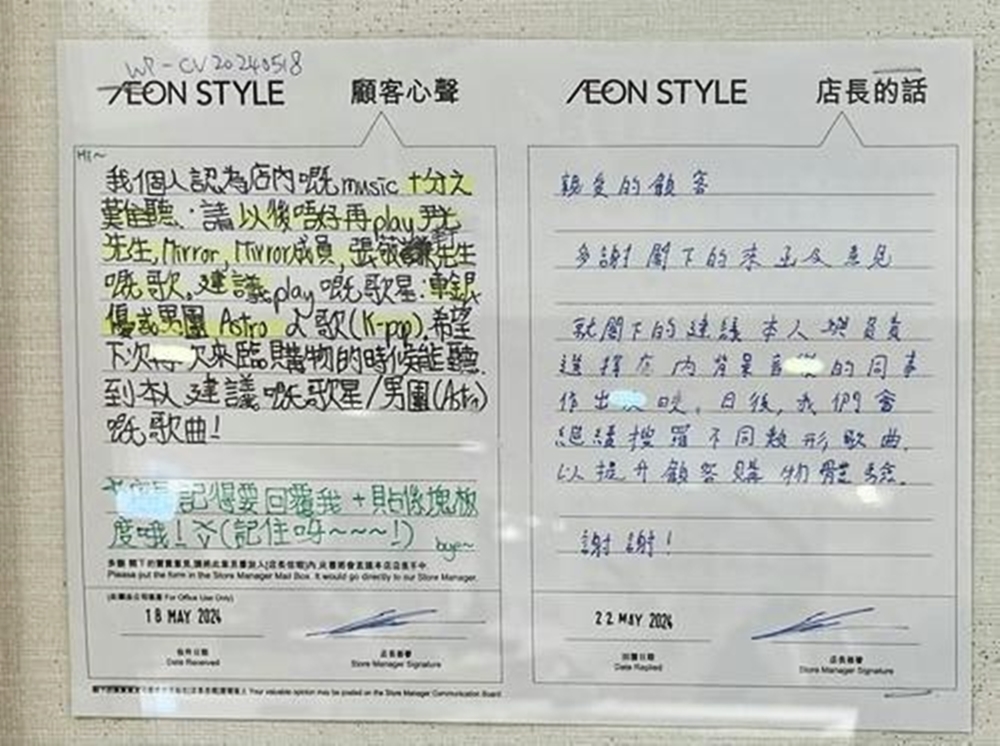 WP-CV20240518
ÆON STYLE
顧客心聲
Hi~
我個人認為店內嘅music十分之
難聽.請以後唔好再play尹光
先生, Mirror, Mirror成員, 張敬軒先生
嘅歌。建議play嘅歌星:車銀
優或男團 Astro 之歌(K-pop).希望
下次 來臨購物的時候能聽
到本人建議嘅歌星/男團(Astro)
嘅歌曲!
記得要回覆我+貼係塊板
度哦!(記住呀~~~!)
bye~
多謝 閣下的寶貴意見,請將此意見書放入[店長信箱]內,此書將會直接本店店長手中.
Please put the form in the Store Manager Mail Box. It would go directly to our Store Manager.
(此欄由公司填寫 For Office Use Only)
18 MAY 2024
收件日期
Date Received
店長簽署
Store Manager Signature
Your valuable opinion may be posted on the Store Manager Communication Board
ÆON STYLE
店長的話
親愛的顧客
多謝閣下的來函及意見
就閣下的建議本人 負責
選擇店內背景音樂的同事
作出 映。日後,我們會
繼續搜羅不同類形歌曲.
以提升顧客購物體驗.
謝謝!
22 MAY 2024
回覆日期
Date Replied
店長簽署
Store Manager Signature